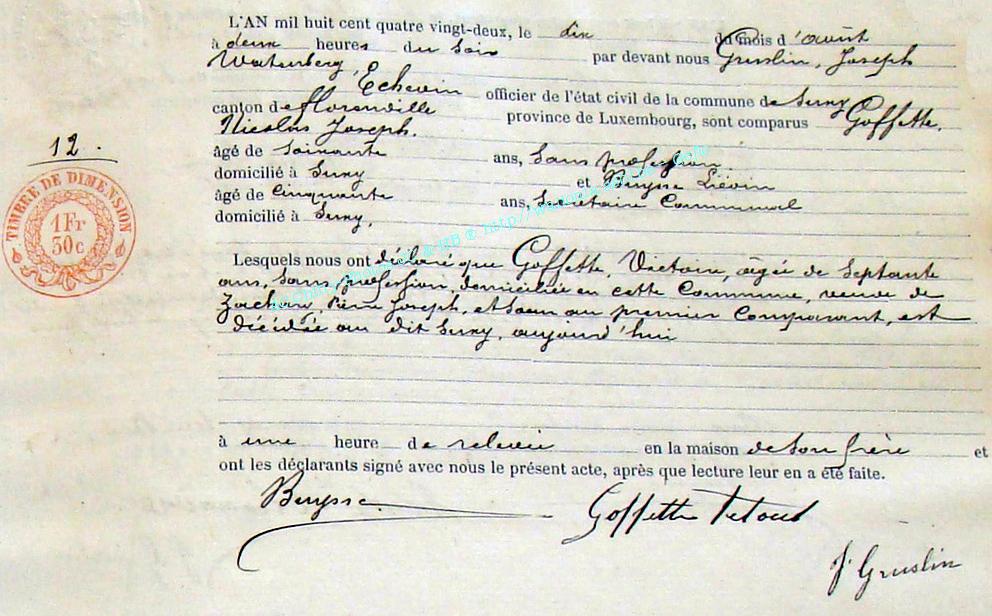 L'AN mil huit cent quatre vingt-deux, le dix du mois d'août
à deux heures du soir par devant nous Gruslin, Joseph
Echevin officier de l'état civil de la commune de Suxy
canton de florenville province de Luxembourg, sont comparus Goffette,
Nicolas Joseph.
12.
âgé de soixante ans, sans profession
domicilié à Suxy et Buysse Liévin
âgé de cinquante ans, secrétaire Communal
domicilié à Suxy,
TIMBRE DE DIMENSION
1 Fr
30 c
Lesquels nous ont déclaré que Goffette, Victoire, âgée de septante
ans, sans profession, domiciliée en cette Commune, veuve de
Zachary, Pierre Joseph, et soeur au premier Comparant, est
décédée au dit Suxy, aujourd'hui
à une heure de relevée en la maison de son frère et
ont les déclarants signé avec nous le présent acte, après que lecture leur en a été faite.
Buysse
Goffette
J. Gruslin